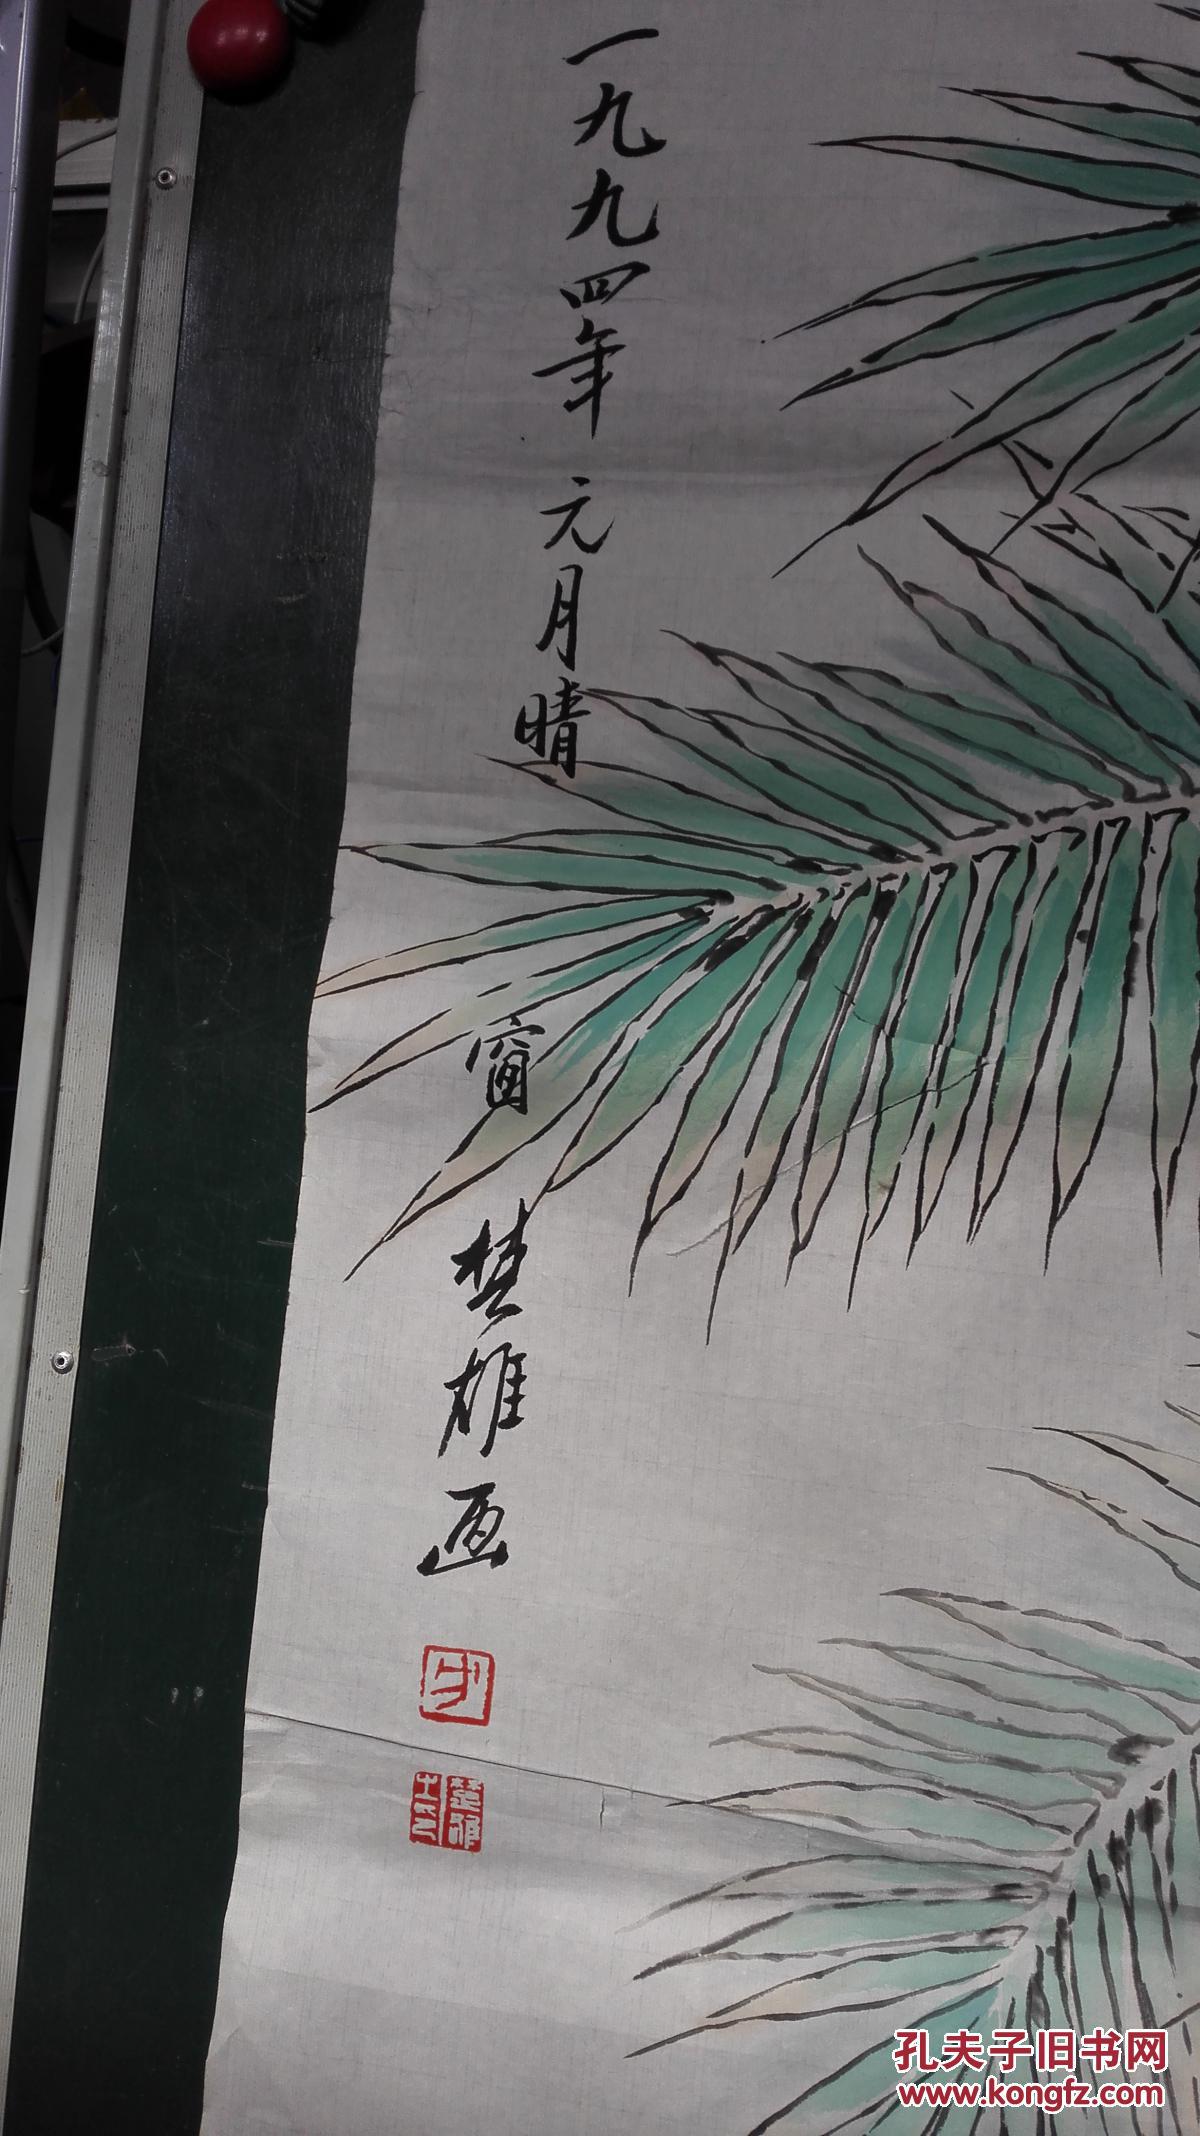 一九九四年元月晴窗楚雄画
孔夫子旧书网
www.kongfz.com